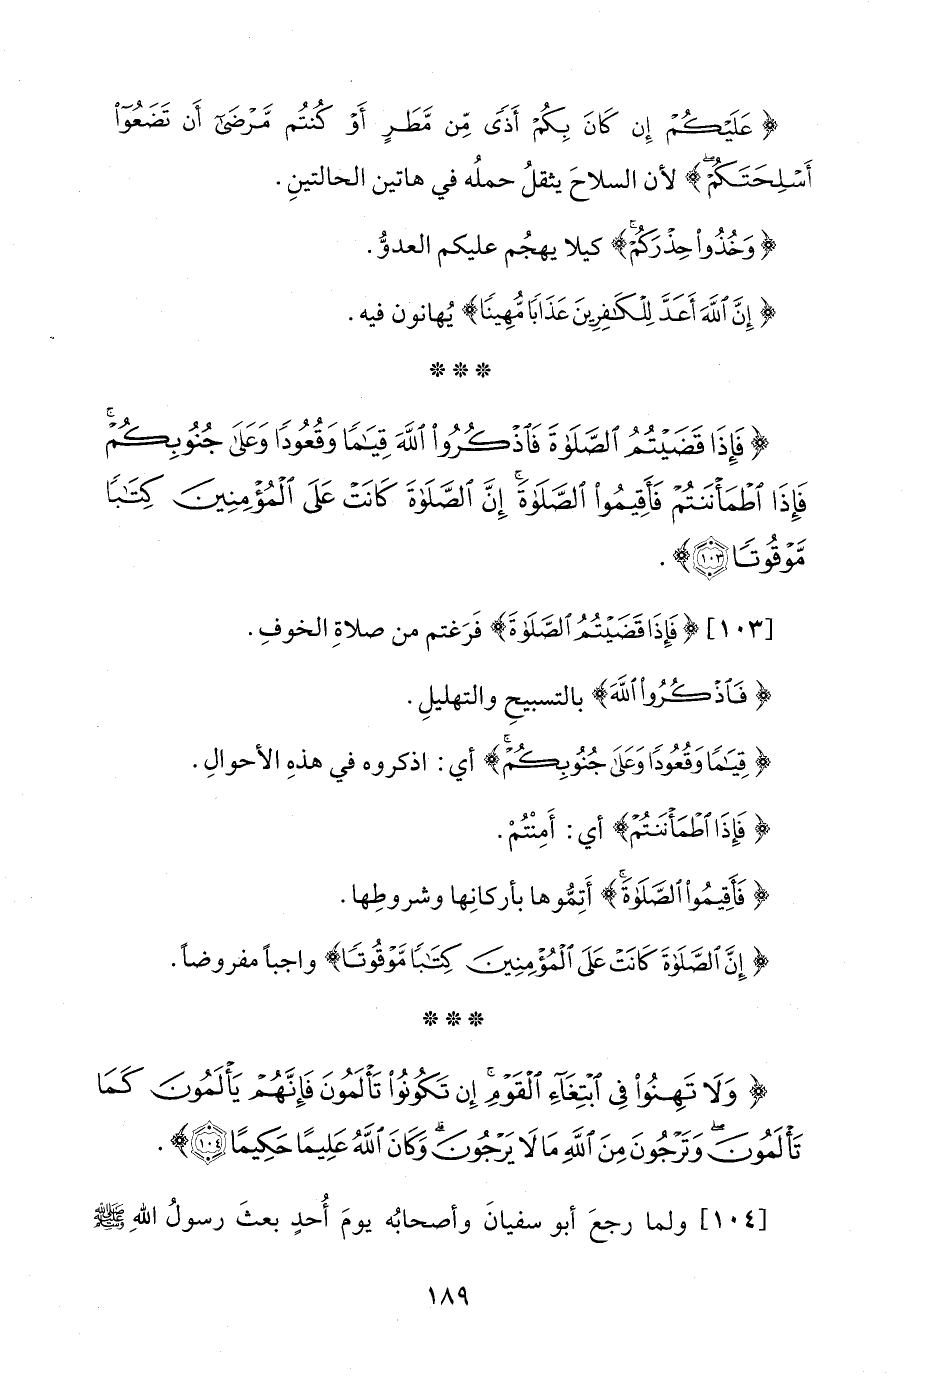 ﴿ عَلَيْكُمْ إِن كَانَ بِكُمْ أَذًى مِّن مَّطَرٍ أَوْ كُنتُم مَّرْضَىٰٓ أَن تَضَعُوٓا۟
أَسْلِحَتَكُمْۖ﴾ لأن السلاحَ يثقلُ حملُه في هاتين الحالتينِ.
﴿ وَخُذُوا۟ حِذْرَكُمْۚ﴾ كيلا يهجُم عليكم العدوُّ.
﴿ إِنَّ ٱللَّهَ أَعَدَّ لِلْكَٰفِرِينَ عَذَابًا مُّهِينًا﴾ يُهانون فيه.
* * *
﴿ فَإِذَا قَضَيْتُمُ ٱلصَّلَوٰةَ فَٱذْكُرُوا۟ ٱللَّهَ قِيَٰمًا وَقُعُودًا وَعَلَىٰ جُنُوبِكُمْۚ
فَإِذَا ٱطْمَأْنَنتُمْ فَأَقِيمُوا۟ ٱلصَّلَوٰةَۚ إِنَّ ٱلصَّلَوٰةَ كَانَتْ عَلَى ٱلْمُؤْمِنِينَ كِتَٰبًا
مَّوْقُوتًا ١٠٣﴾.
[١٠٣] ﴿ فَإِذَا قَضَيْتُمُ ٱلصَّلَوٰةَ﴾ فَرَغتم من صلاةِ الخوفِ.
﴿ فَٱذْكُرُوا۟ ٱللَّهَ﴾ بالتسبيحِ والتهليلِ.
﴿ قِيَٰمًا وَقُعُودًا وَعَلَىٰ جُنُوبِكُمْۚ﴾ أي: اذكروه في هذهِ الأحوالِ.
﴿ فَإِذَا ٱطْمَأْنَنتُمْ﴾ أي: أَمِنْتُمْ.
﴿ فَأَقِيمُوا۟ ٱلصَّلَوٰةَۚ﴾ أَتِمُّوها بأركانِها وشروطِها.
﴿ إِنَّ ٱلصَّلَوٰةَ كَانَتْ عَلَى ٱلْمُؤْمِنِينَ كِتَٰبًا مَّوْقُوتًا﴾ واجباً مفروضاً.
* * *
﴿ وَلَا تَهِنُوا۟ فِى ٱبْتِغَآءِ ٱلْقَوْمِۖ إِن تَكُونُوا۟ تَأْلَمُونَ فَإِنَّهُمْ يَأْلَمُونَ كَمَا
تَأْلَمُونَۖ وَتَرْجُونَ مِنَ ٱللَّهِ مَا لَا يَرْجُونَۗ وَكَانَ ٱللَّهُ عَلِيمًا حَكِيمًا ١٠٤﴾.
[١٠٤] ولما رجعَ أبو سفيانَ وأصحابُه يومَ أُحدٍ بعثَ رسولُ اللهِ ﷺ
١٨٩